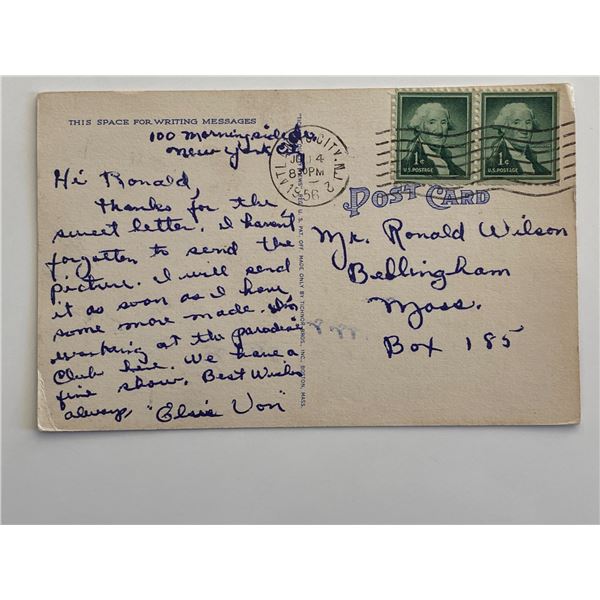 THIS SPACE FOR WRITING MESSAGES
100 Morningside Dr
New York City
Hi Ronald,
Thanks for the
sweet letter. I haven't
forgotten to send the
picture. I will send
it as soon as I have
some more made. I'm
working at the paradise
Club here. We have a
fine show. Best Wishes
always, "Elsie Von"
ATLANTIC CITY N.J.
4
830PM
1956
1¢
U.S. POSTAGE
1¢
U.S. POSTAGE
POST CARD
Mr. Ronald Wilson
Bellingham
Mass.
Box 185
REG. U.S. PAT. OFF. MADE ONLY BY TICHNOR BROS., INC., BOSTON, MASS.